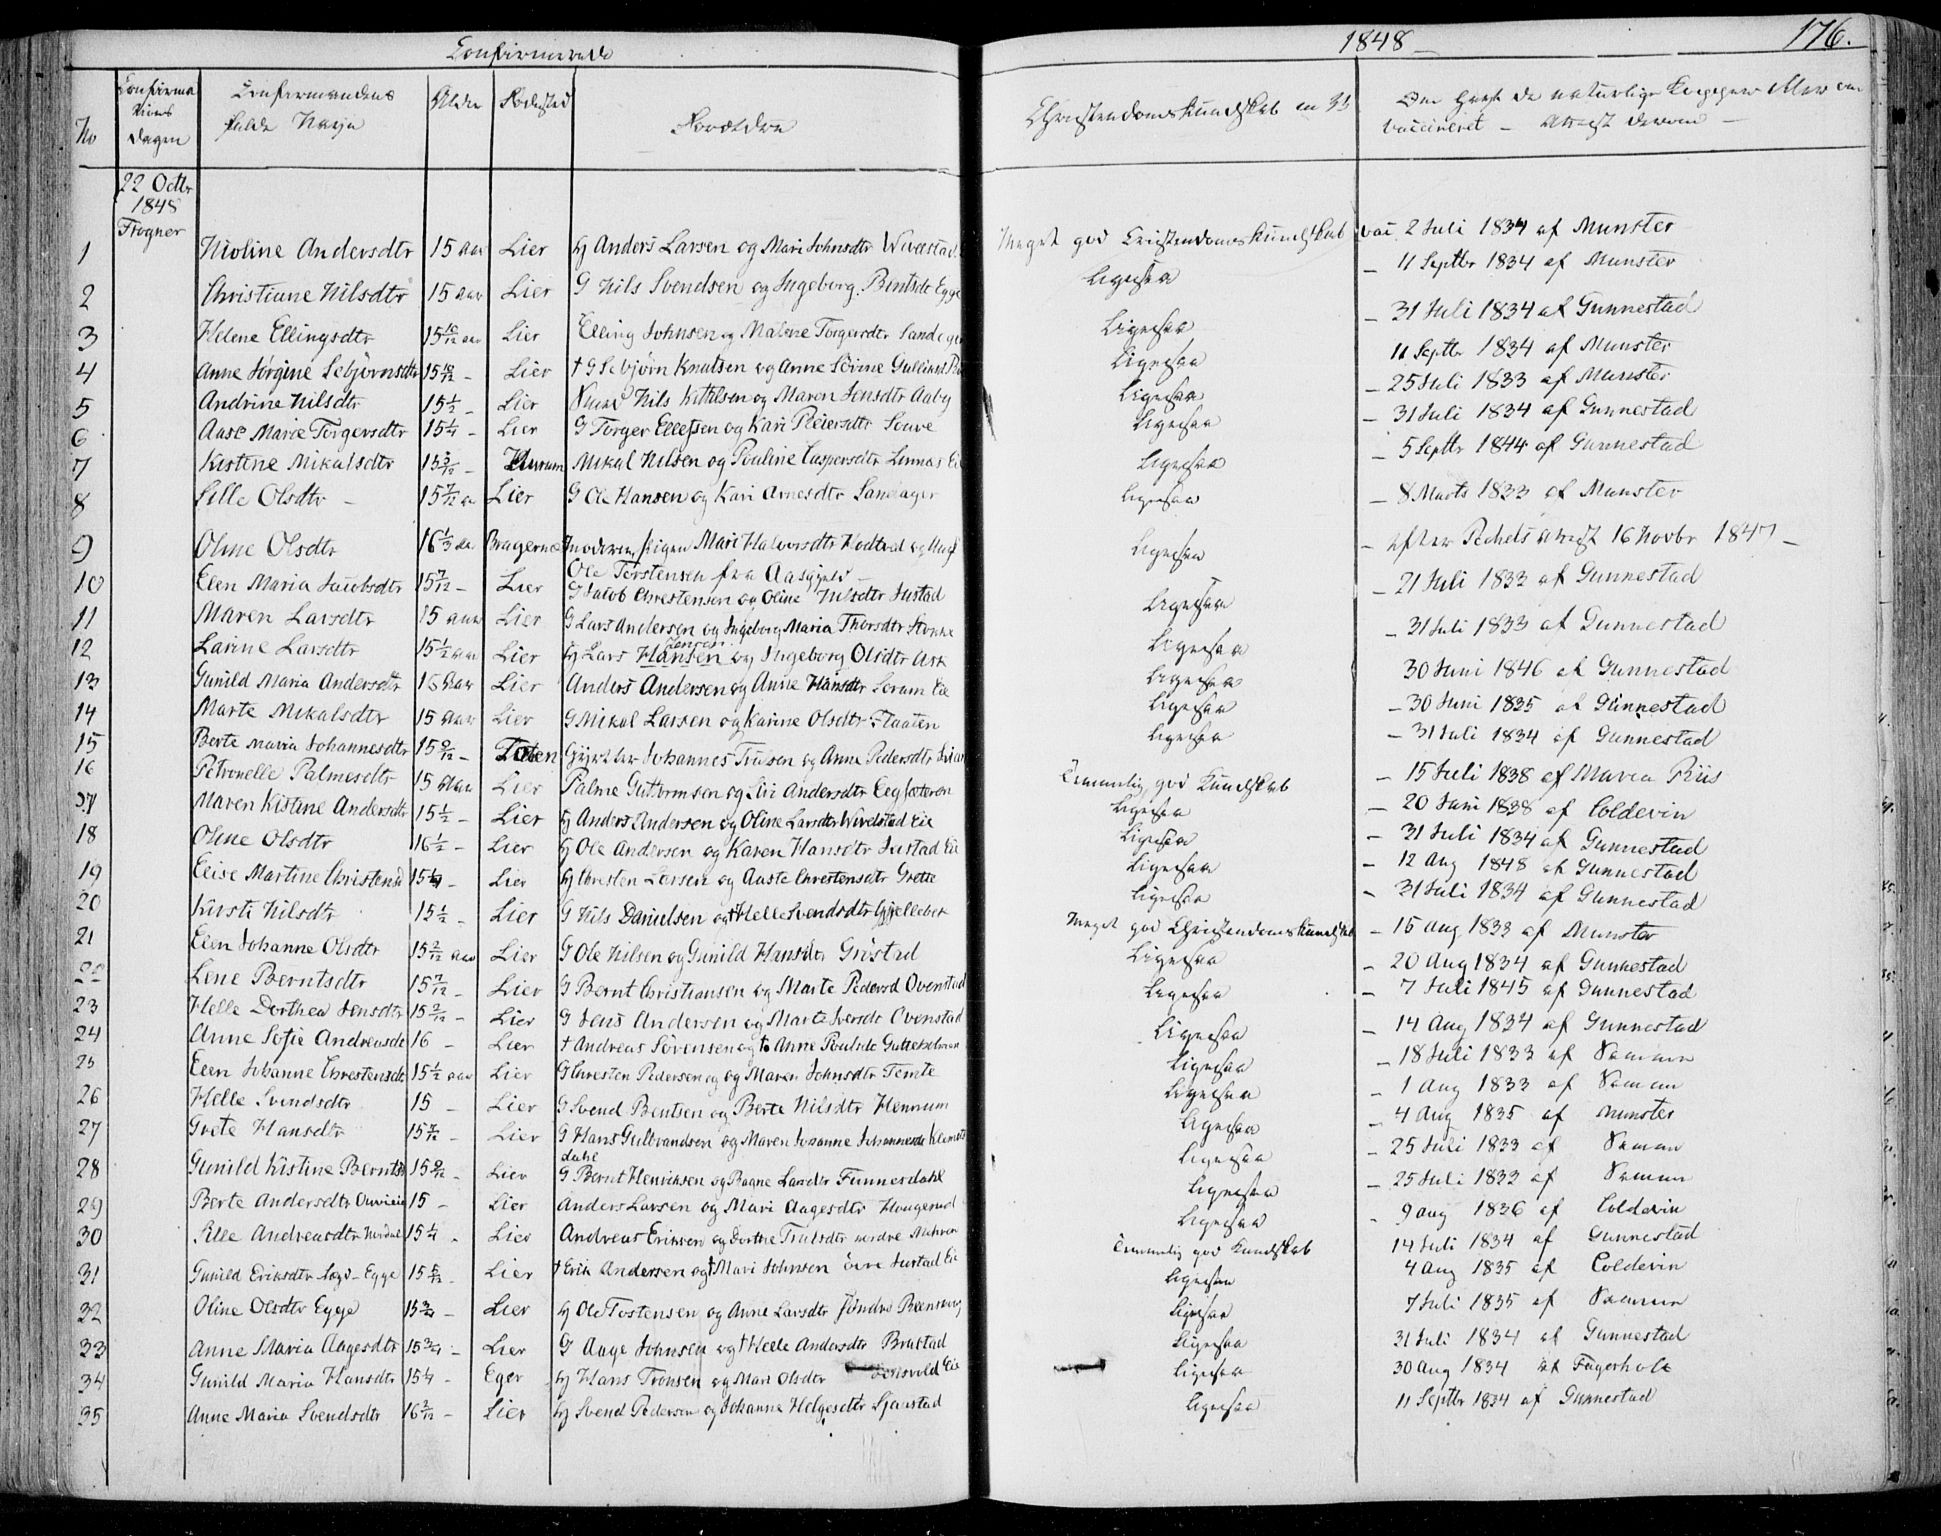 Confirmerede 1848 176.
No Confirmations Dagen Confirmandens fulde Navn Alder Fødested Forældre Christendomskundskab Om havt de naturlige Kopper eller er vaccineret - Attest derom -
22 Octbr
1848
Frogner
1 Nicoline Andersdtr 15 aar Lier Anders Larsen og Mari Johnsdtr Meget god Cristendomskundskab vac. 2 Juli 1834 af Munster
2 Christiane Nilsdtr 15 aar Lier G Nils Svendsen og Ingeborg Bentsdr Egge Ligesaa - 11 Septbr 1834 af Munster
3 Helene Ellingsdtr 15 10/12 aar Lier Elling Johnsen og Malene Torgersdtr Ligesaa - 31 Juli 1834 af Gunnestad
4 Anne Jørgine Sebjørnsdtr 15 10/12 - Lier † G Sebjørn Knutsen og Anne Sørine Ligesaa 11 Septbr 1834 af Munster
5 Andrine Nilsdtr 15 1/2 - Lier Nils Kittilsen og Maren Jensdtr Aaby Ligesaa - 25 Juli 1833 af Munster
6 Aase Marie Torgersdtr 15 1/4 - Lier G Torger Ellefsen og Kari Peiersdtr Ligesaa - 31 Juli 1834 af Gunnestad
7 Kistine Mikalsdtr Hurum Mikal Nilsen og Pouline Caspersdtr Linnes Eie Ligesaa - 5 Septbr 1844 af Gunnestad
8 Sille Olsdtr - 15 7/12 aa Lier G Ole Hansen og Kari Arnesdtr Sandager Ligesaa - 8 Marts 1833 af Munster
9 Oline Olsdtr 16 1/3 aa Bragernes Moderen Pigen Mari Halvorsdtr og Ligesaa - efter Attest 16 Novbr 1847 -
Ole Torstensen fra
10 Elen Maria Jacobsdtr 15 7/12 - Lier G Jacob Chrestensen og Oline Nilsdtr Justad Ligesaa - 21 Juli 1833 af Gunnestad
11 Maren Larsdtr 15 aar Lier G Lars Andersen og Ingeborg Maria Thorsdtr Ligesaa - 31 Juli 1833 af Gunnestad
12 Larine Larsdtr 15 1/2 aar Lier Lars Hansen og Ingeborg Olsdtr Ask Ligesaa 30 Juni 1846 af Gunnestad
13 Gunild Maria Andersdtr 15 aar Lier Anders Andersen og Anne Hansdtr Serum Eie Ligesaa - 30 Juni 1835 af Gunnestad
14 Marte Mikalsdtr 15 aar Lier G Mikal Larsen og Karine Olsdtr Flaaten Ligesaa - 31 Juli 1834 af Gunnestad
15 Berte Maria Johannesdtr Toten Johannes Trulsen og Anne Pedersdtr Ligesaa - 15 Juli 1838 af Maria Riis
16 Petronelle Palmesdtr 15 aar Lier Palme Guttormsen og Siri Andersdtr Temmelig god Kundskab - 20 Juni 1838 af Coldevin
17 Maren Kistine Andersdtr 15 1/2 - Lier Anders Andersen og Oline Larsdtr Wivelstad Eie Ligesaa - 31 Juli 1834 af Gunnestad
18 Oline Olsdtr 16 1/2 - Lier Ole Andersen og Karen Hansdtr Justad Eie Ligesaa - 12 Aug 1848 af Gunnestad
19 Elise Martine Christensd 15 - Lier Chresten Larsen og Aaste Chrestensdtr Grette Ligesaa - 31 Juli 1834 af Gunnestad
20 Kirsti Nilsdtr 15 1/2 - Lier G Nils Danielsen og † Helle Svendsdtr Gjellebek Ligesaa
21 Elen Johanne Olsdtr aar Lier G Ole Nilsen og Gunild Hansdtr Grøstad Meget god Christendomskundskab - 15 Aug 1833 af Munster
22 Lene Berntsdtr 15 7/12 - Lier G Bernt Christiansen og Marte Pedersd Ovenstad Ligesaa - 20 Aug 1834 af Gunnestad
23 Helle Dorthea Jensdtr - Lier G Jens Andersen og Marte Iversdr Ovenstad Ligesaa - 7 Juli 1845 af Gunnestad
24 Anne Sofie Andreasdr 16 - Lier † Andreas Sørensen og † Anne Poulsdr Ligesaa - 14 Aug 1834 af Gunnestad
25 Elen Johanne Chrestensdr 15 1/2 aar Lier G Chresten Pedersen og Maren Johnsdtr Temte Ligesaa - 18 Juli 1833 af
26 Helle Svendsdtr 15 - Lier G Svend Bentsen og Berte Nilsdtr Hennum Ligesaa - 1 Aug 1833 af
27 Grete Hansdtr - Lier G Hans Gulbrandsen og Maren Johanne Johannesdr Klemetsdahl Ligesaa - 4 Aug 1835 af Munster
28 Gunild Kistine Berntsd - Lier G Bernt Henriksen og Ragne Larsdtr Funnesdahl Ligesaa - 25 Juli 1833 af
29 Berte Andersdtr 15 - Lier Anders Larsen og Mari Aagesdtr Haugerud Ligesaa - 25 Juli 1832 af
30 Andreasdtr 15 1/4 - Lier Andreas Eriksen og Dorthe Trulsdtr nordre Ligesaa 9 Aug 1836 af Coldevin
31 Gunild Eriksdtr Egge - Lier † Erik Andersen og † Mari Johnsen øvre Justad Eie Temmelig god Kundskab 14 Juli 1834 af Gunnestad
32 Oline Olsdtr Egge 15 3/4 - Lier Ole Tostensen og Anne Larsdtr Søndre Ligesaa 4 Aug 1835 af Coldevin
33 Anne Maria Aagesdtr 15 3/4 - Lier G Aage Johnsen og † Helle Andersdtr Brastad Ligesaa 7 Juli 1835 af
34 Gunild Maria Hansdtr 15 1/4 - Eger Hans Tronsen og Mari Olsdtr Eie Ligesaa 31 Juli 1834 af Gunnestad
35 Anne Maria Svendsdtr 16 - Lier Svend Pedersen og Johanne Helgesdtr Sjaastad Ligesaa 30 Aug 1834 af Fagerholt
Ligesaa 11 Septbr 1834 af Gunnestad